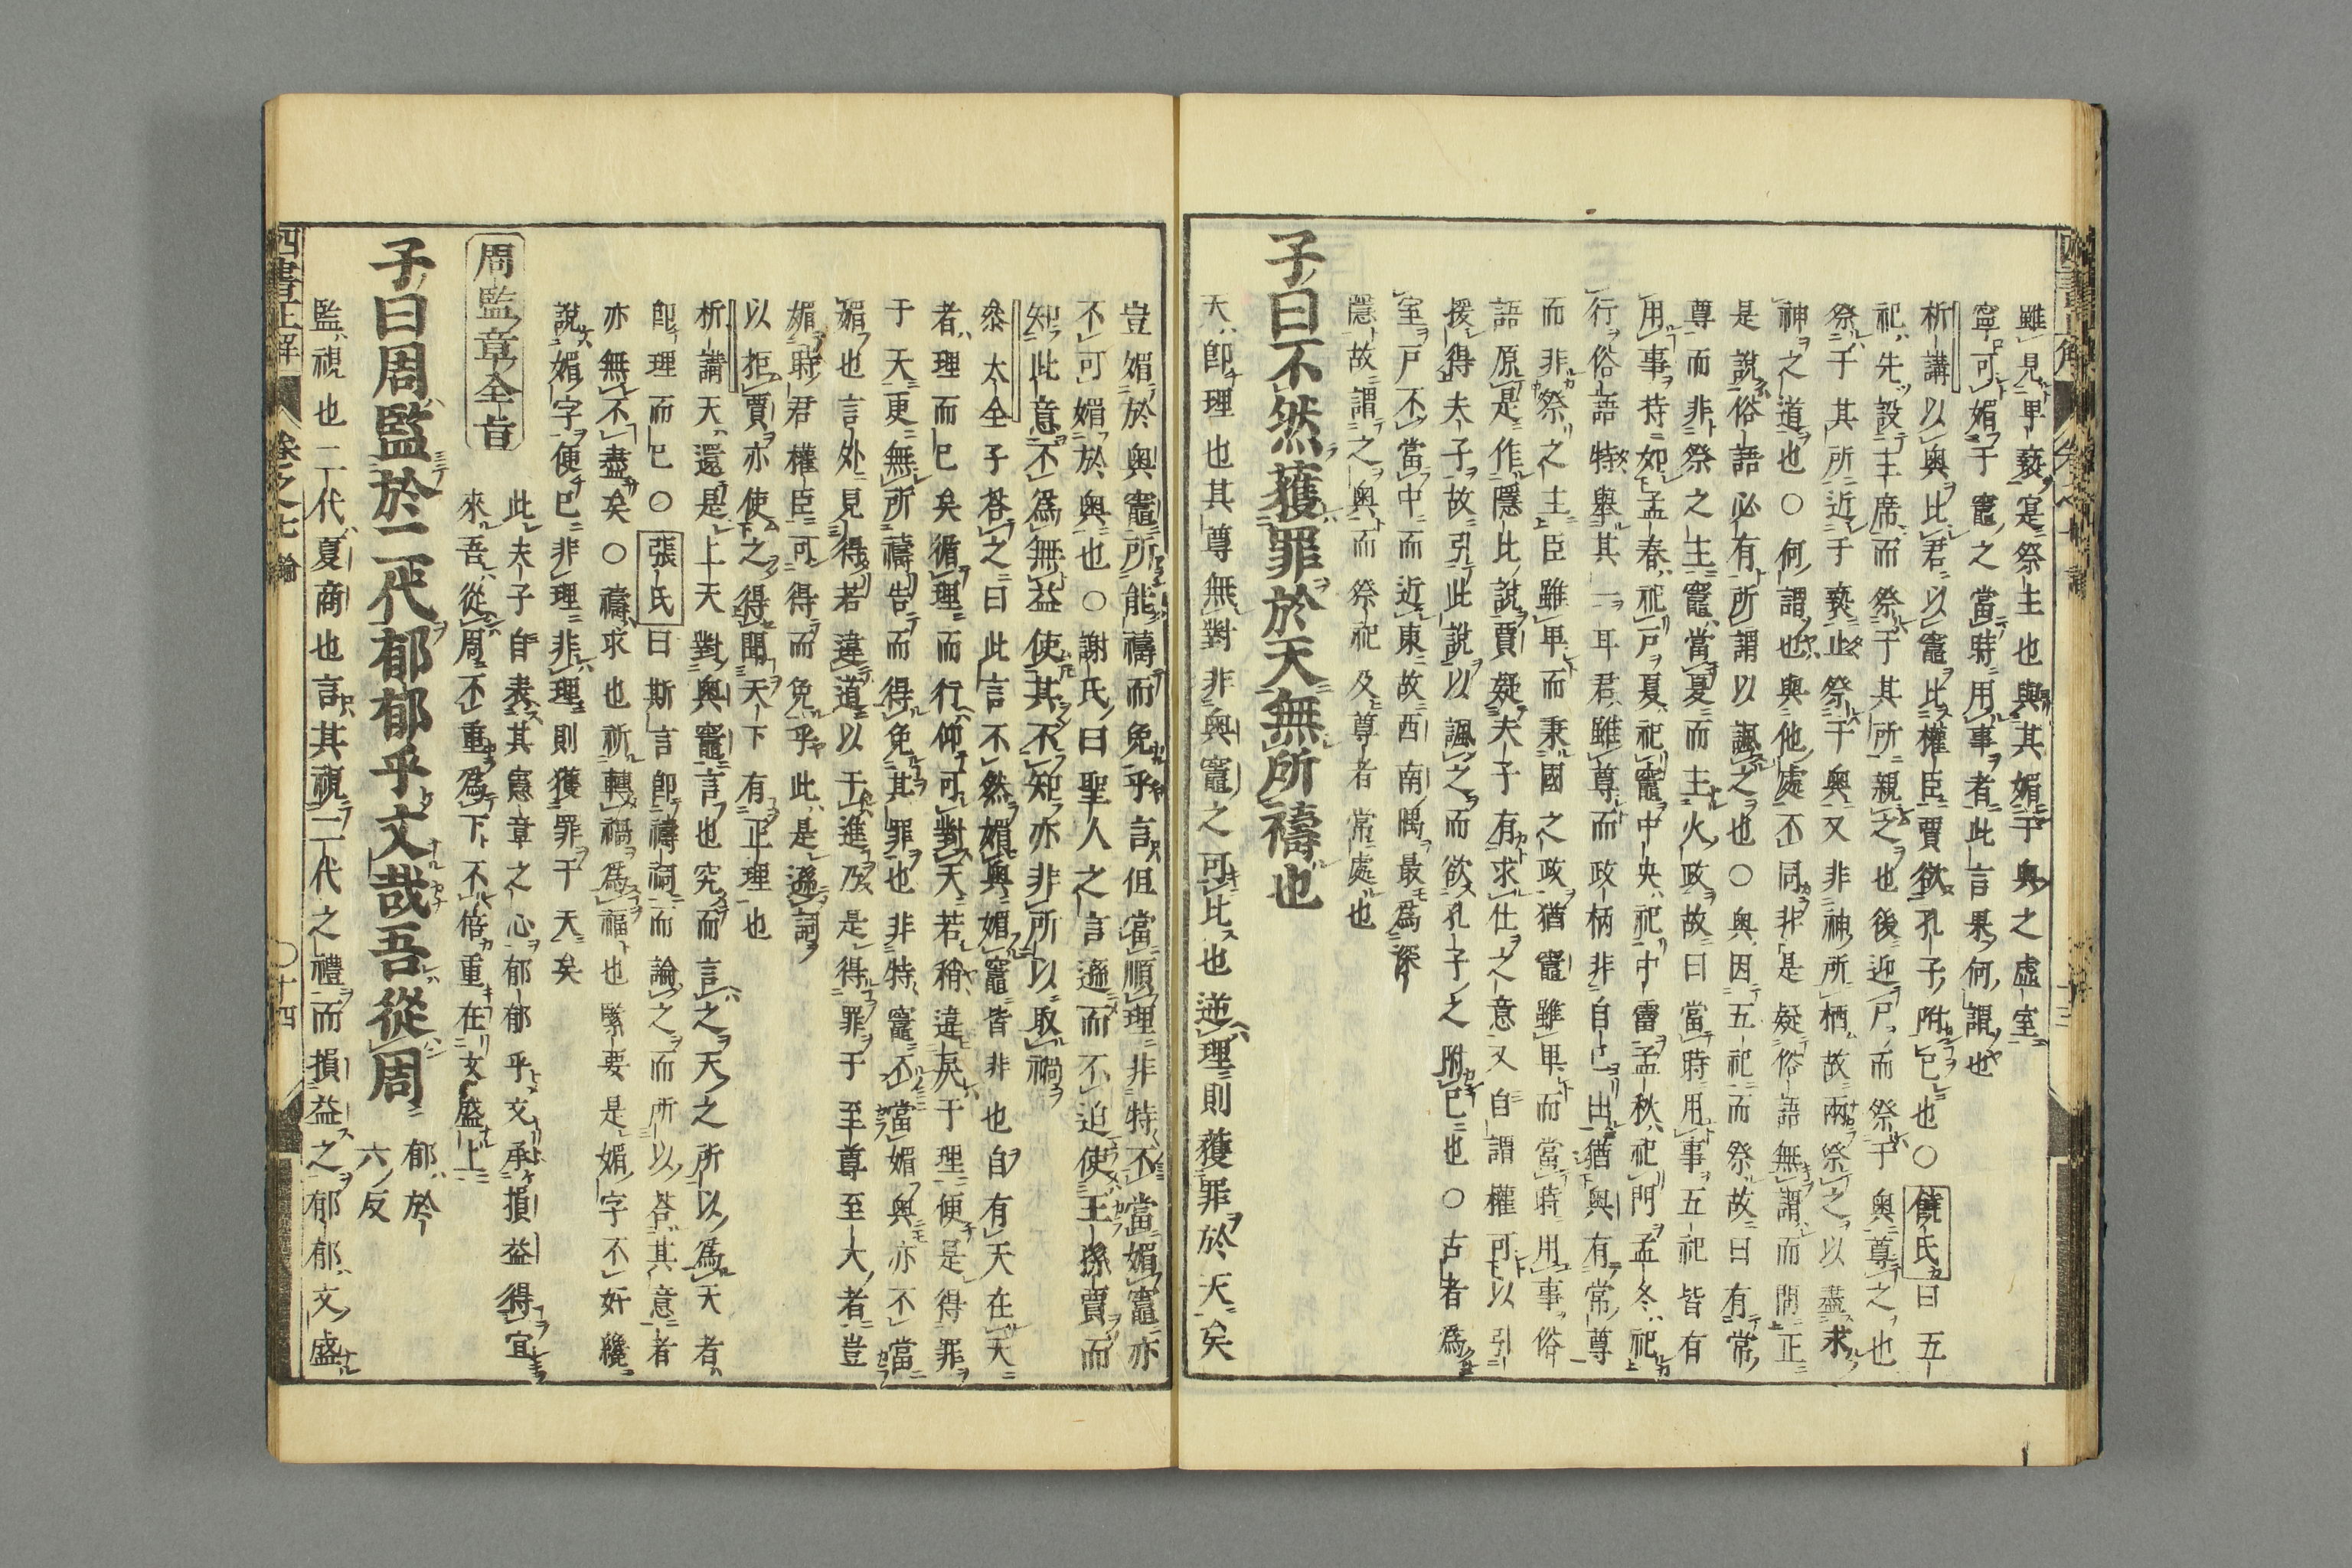 雖見卑褻寔祭主也與其媚于奧之虛室
寧可媚于竈之當時用事者此言果何謂也
析講以奧比君以竈比權臣賈欲孔子附己也○饒氏曰五
祀先設主席而祭于其所親之也後迎尸而祭于奧尊之也
祭于其所近于褻止祭于奧又非神所栖故兩祭之以盡求
神之道也○何謂也與他處不同非是疑俗語無謂而問正
是說俗語必有所謂以諷之也○奧因五祀而祭故曰有常
尊而非祭之主竈當夏而主火政故曰當時用事五祀皆有
用事特如孟春祀戶夏祀竈中央祀中霤孟秋祀門孟冬祀
行俗語特舉其一耳君雖尊而政柄非自己出猶奧有常尊
而非祭之主臣雖卑而秉國之政猶竈雖卑而當時用事俗
語原是作隱比說賈疑夫子有求仕之意又自謂權可以引
援得夫子故引此說以諷之而欲孔子之附己也○古者為
室戶不當中而近東故西南隅最為深
隱故謂之奧而祭祀及尊者常處也
子曰不然獲罪於天無所禱也
天即理也其尊無對非奧竈之可比也逆理則獲罪於天矣
豈媚於奧竈所能禱而免乎言但當順理非特不當媚竈亦
不可媚於奧也○謝氏曰聖人之言遜而不迫使王孫賈而
知此意不為無益使其不知亦非所以取禍
叅太全子答之曰此言不然媚奧媚竈皆非也自有天在天
者理而已矣循理而行仰可對天若稍違戾于理便是得罪
于天更無所禱告而得免其罪也非特竈不當媚奧亦不當
媚也言外見得若違道以干進乃是得罪于至尊至大者豈
媚時君權臣可得而免乎此是遜詞
以拒賈亦使之得聞天下有正理也
析講天還是上天對奧竈言也究而言之天之所以為天者
即理而已○張氏曰斯言即禱祠而論之而所以答其意者
亦無不盡矣○禱求也祈轉禍為福也緊要是媚字不好纔
說媚字便已非理非理則獲罪于天矣
周監章全旨
此夫子自表其憲章之心郁郁乎文承損益得宜
來吾從周不重為下不倍重在文盛上
子曰周監於二代郁郁乎文哉吾從周
郁於
六反
監視也二代夏商也言其視二代之禮而損益之郁郁文盛
四書正解
卷之七論
○十四